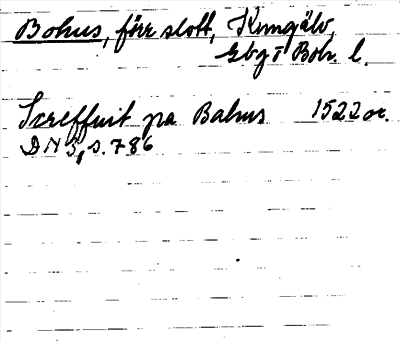 Bohus, förr slott, Kungälv,
Gbg o Boh. l.
Screffuit pa Bahus 1522 or.
DN 3, s. 786